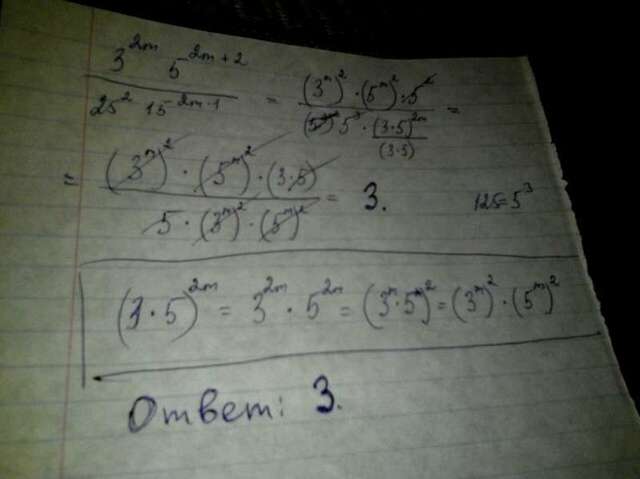 3^{2m} 5^{2m+2} / 25^2 15^{2m-1} = (3^m)^2 · (5^m)^2 · 5^2 / 5^3 · (3·5)^{2m} / (3·5) =
= (3^m)^2 · (5^m)^2 · (3·5) / 5 · (3^m)^2 · (5^m)^2 = 3. 125=5^3
(3·5)^{2m} = 3^{2m} · 5^{2m} = (3^m · 5^m)^2 = (3^m)^2 · (5^m)^2
Ответ: 3.